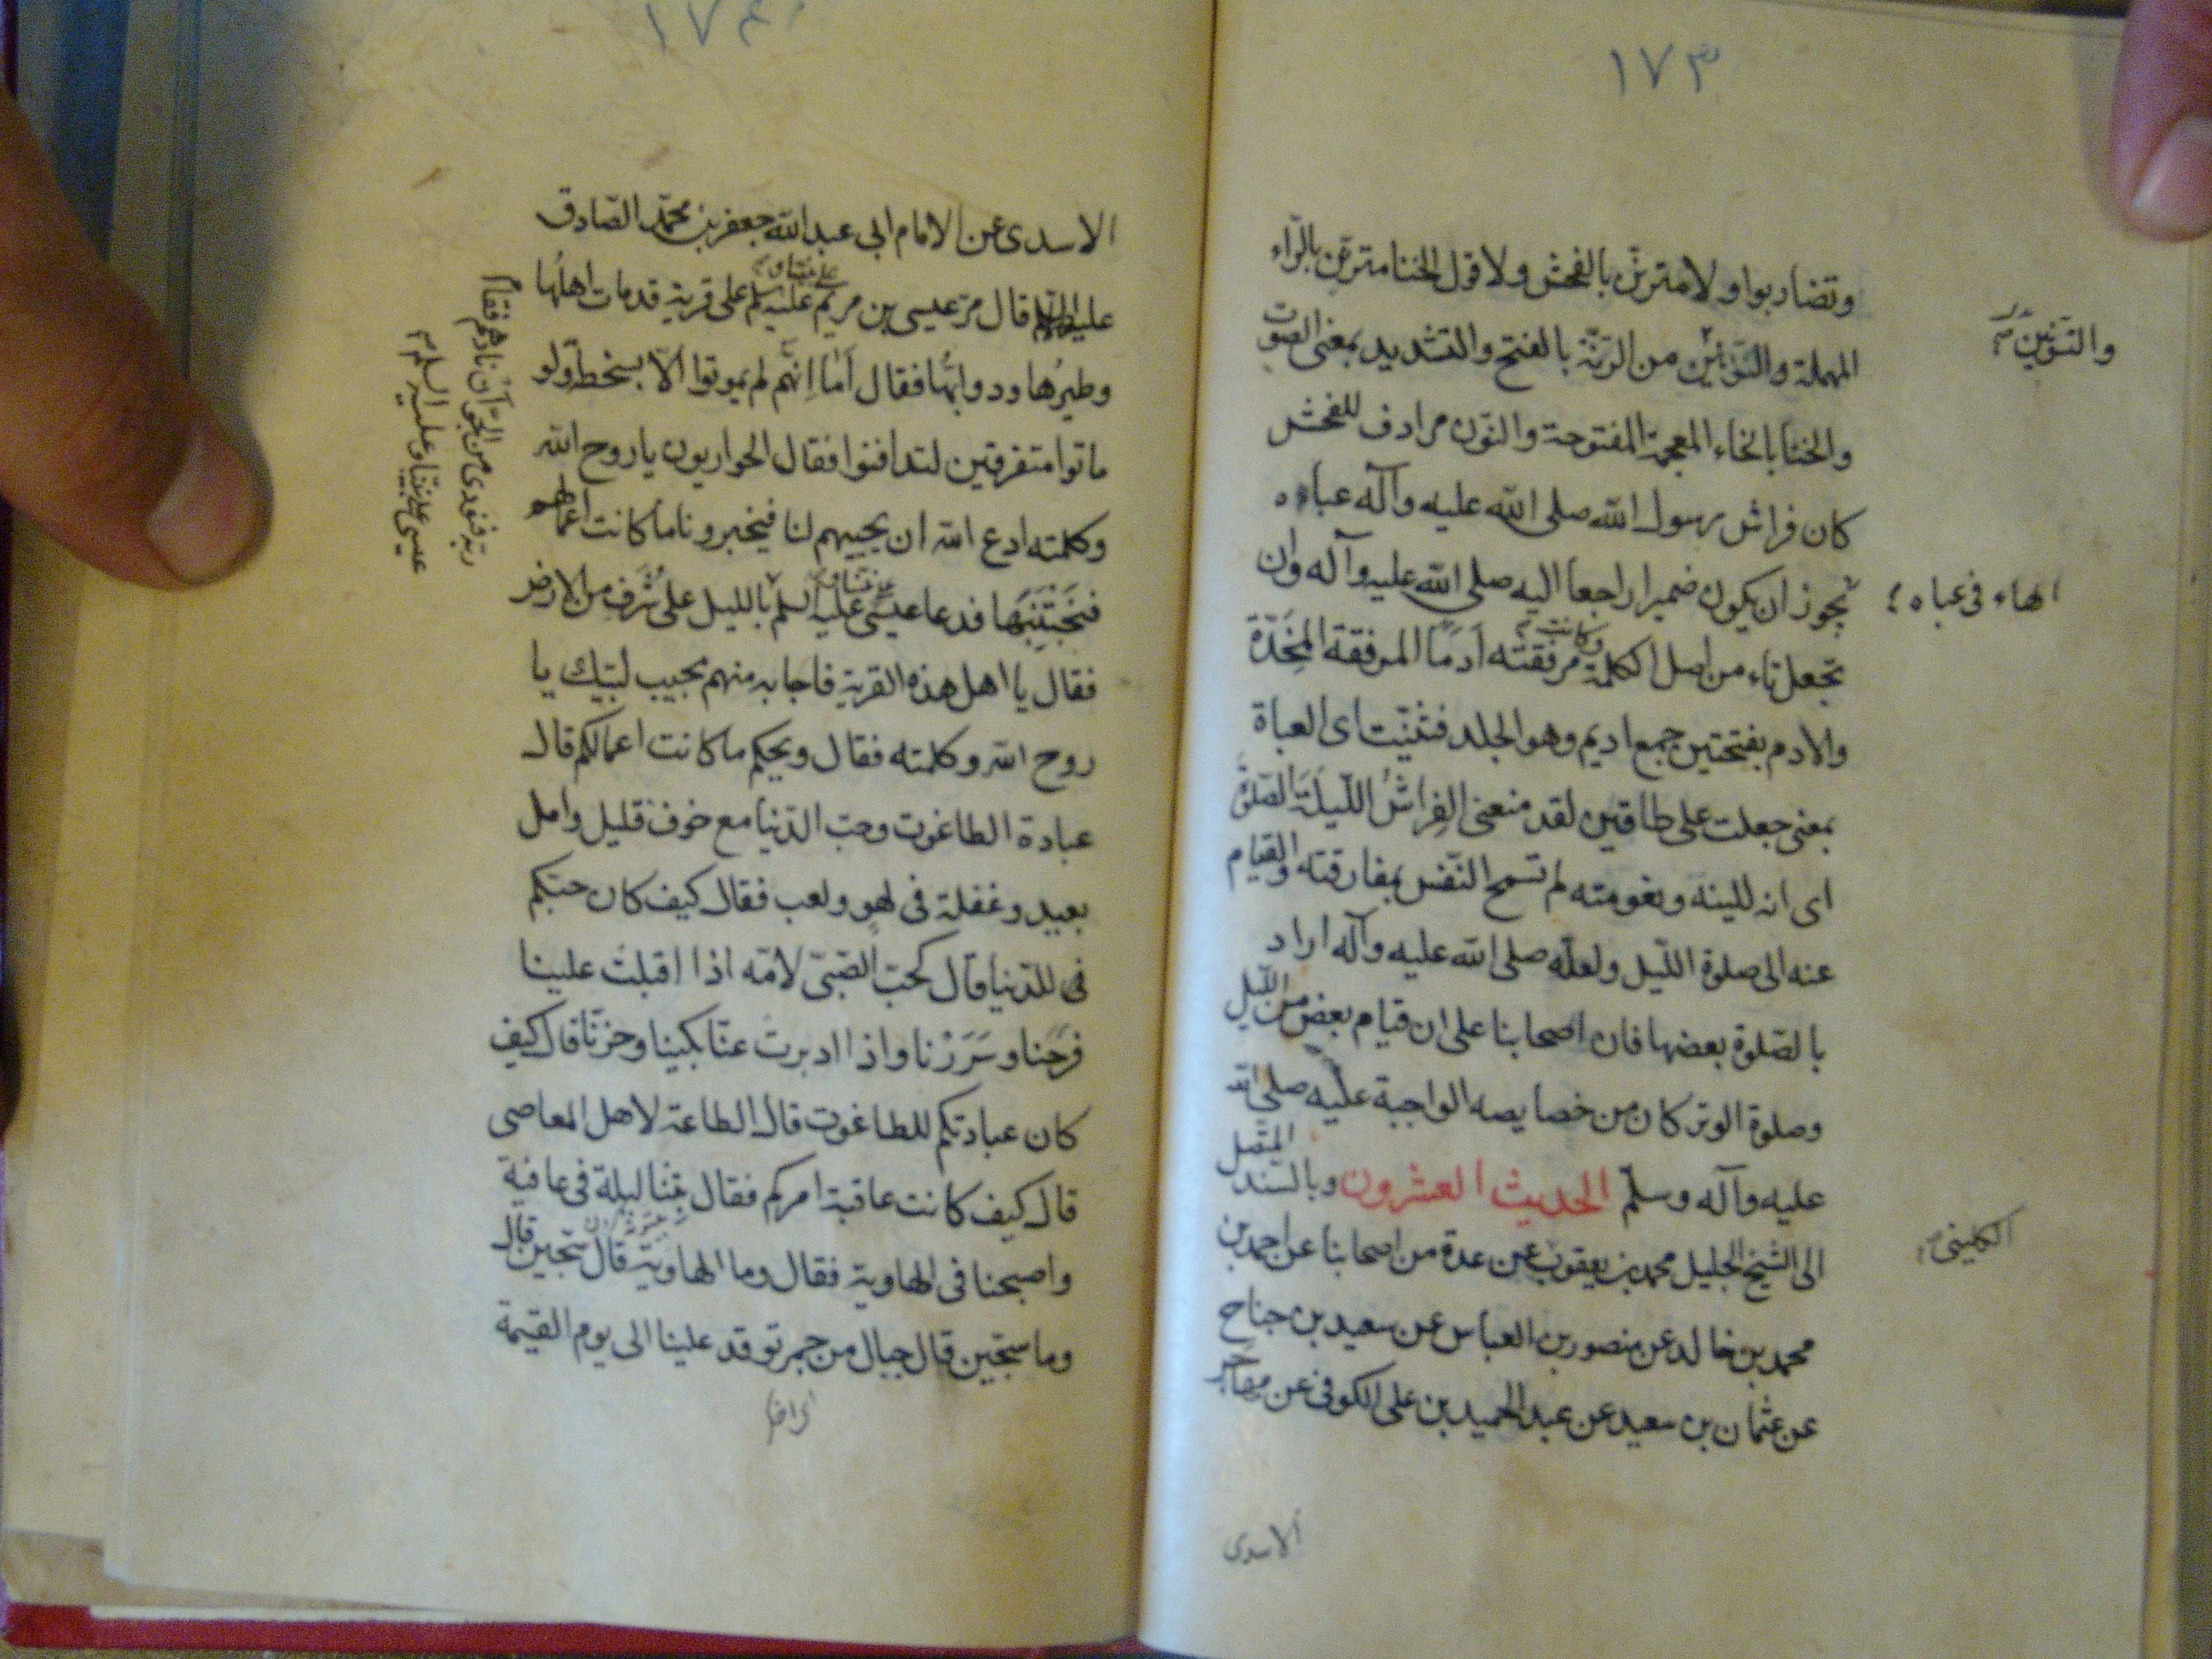 ١٧٣
وتضاربوا ولا مترنن بالفحش ولا قول الخنا مترنن بالراء
المهملة والنونين من الرنة بالفتح والتشديد بمعنى الصوت
والنونين
والخنا بالخاء المعجمة المفتوحة والنون مرادف للفحش
كان فراش رسول الله صلى الله عليه وآله عباءه
الهاء فى عباه
يجوز ان يكون ضميرا راجعا اليه صلى الله عليه وآله وان
تجعل تاء من اصل الكلمة وكانت مرفقته اَدَمًا المرفقة المِخَدّة
والادم بفتحتين جمع اديم وهو الجلد فثنيت اى العباة
بمعنى جعلت على طاقين لقد منعنى الفِراشُ اللّيلةَ الصّلوةَ
اى انه للينه ونعومته لم تسمح النّفس بمفارقته والقيام
عنه الى صلوة اللّيل ولعلّه صلى الله عليه وآله اراد
بالصّلوة بعضها فان اصحابنا على ان قيام بعض من اللّيل
وصلوة الوتر كان من خصايصه الواجبة عليه صلى الله
عليه وآله وسلّم الحديث العشرون وبالسّند المتصل
الى الشيخ الجليل محمد بن يعقوب عن عدة من اصحابنا عن احمد بن
الكلينى
محمد بن خالد عن منصور بن العباس عن سعيد بن جناح
عن عثمان بن سعيد عن عبد الحميد بن على الكوفى عن مهاجر
الاسدى
١٧٤
الاسدى عن الامام ابى عبد الله جعفر بن محمّد الصّادق
عليه السلم قال مرّ عيسى بن مريم على نبينا وعليه السلم على قرية قد مات اهلُها
وطيرُها ودوابّها فقال أَمَا اِنّهم لم يموتوا الّا بسخطة ولو
ماتوا متفرقين لتدافنوا فقال الحواريون يا روح الله
وكلمته ادع الله ان يحييهم لنا فيخبرونا ما كانت اعمالهم
فنَجتَنِبَها فدعا عيسى على نبينا وعليه السلم بالليل على شَرَفٍ من الارض
ربه فنودى من الجوّ اَن نادهم فقام
عيسى على نبينا وعليه السلم
فقال يا اهل هذه القرية فاجابه منهم مجيب لبّيك يا
روح الله وكلمته فقال ويحكم ما كانت اعمالكم قال
عبادة الطاغوت وحبّ الدّنيا مع خوف قليل وامل
بعيد وغفلة فى لهو ولعب فقال كيف كان حبّكم
فى للدّنيا قال كحبّ الصّبىّ لامّه اذا اقبلت علينا
فَرِحنا وسَرَرْنا واذا ادبرت عنّا بكينا وحزنّا قال كيف
كان عبادتكم للطاغوت قال الطاعة لاهل المعاصى
قال كيف كانت عاقبة امركم فقال بتنا ليلة فى عافية
واصبحنا فى الهاوية فقال وما الهاوية قال سجّين قال
وما سجّين قال جبال من جمر توقد علينا الى يوم القيمة